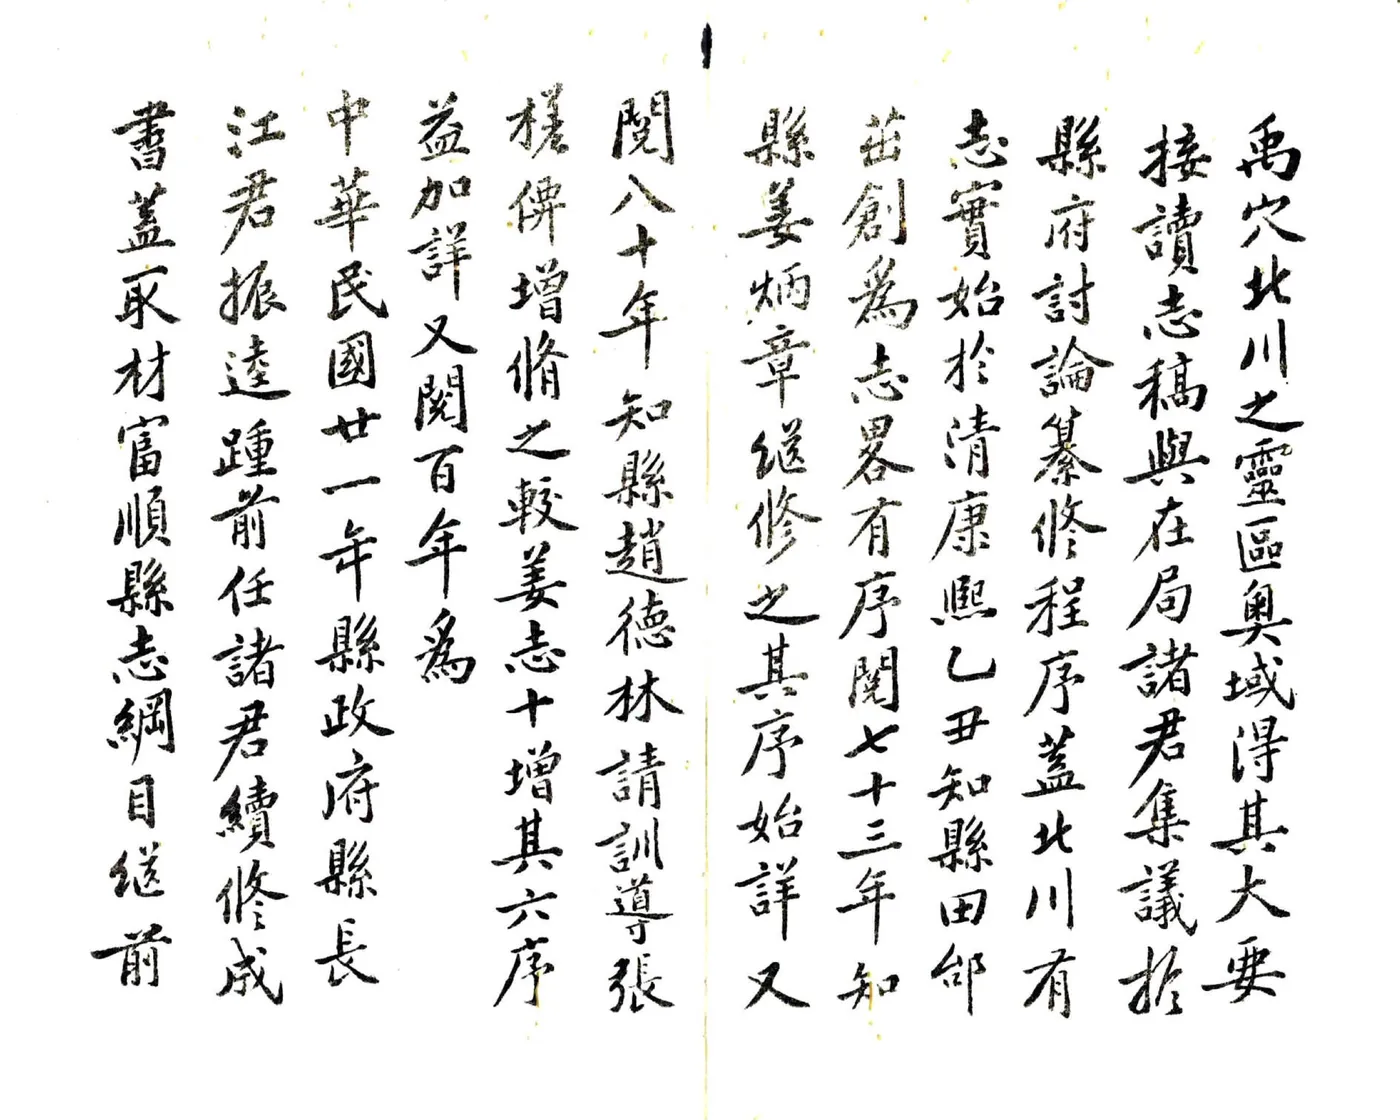 禹穴北川之靈區奧域得其大要
接讀志稿與在局諸君集議於
縣府討論纂修程序蓋北川有
志實始於清康熙乙丑知縣田邰
茁創爲志畧有序閱七十三年知
縣姜炳章继修之其序始詳又
閱八十年知縣趙德林請訓導張
槎俾增脩之較姜志十增其六序
益加詳又閱百年爲
中華民國廿一年縣政府縣長
江君振逵踵前任諸君續修成
書蓋取材富順縣志綱目继前